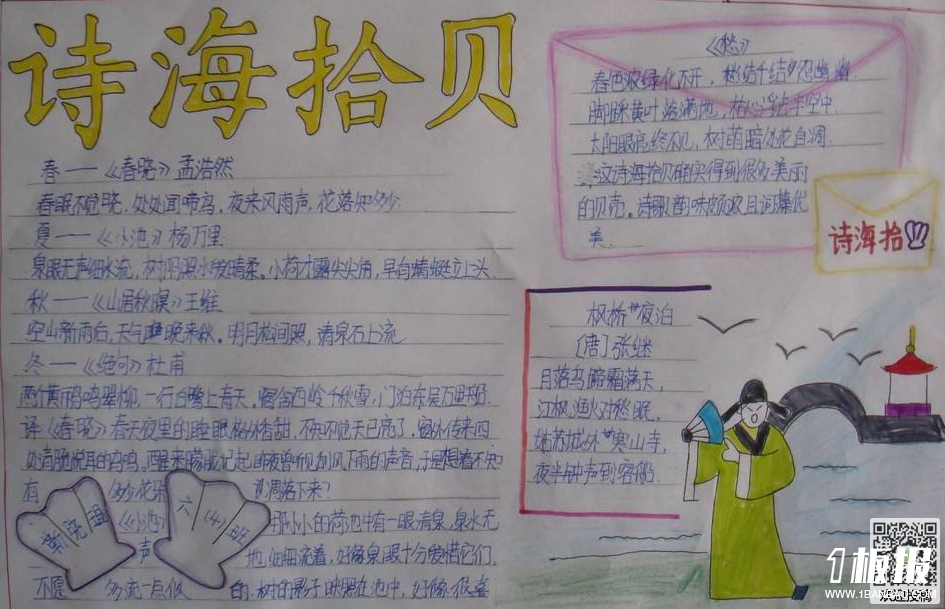 诗海拾贝
春——《春晓》孟浩然
春眠不觉晓,处处闻啼鸟,夜来风雨声,花落知多少.
夏——《小池》杨万里
泉眼无声细水流,树阴照水爱晴柔.小荷才露尖尖角,早有蜻蜓立上头.
秋——《山居秋暝》王维
空山新雨后,天气晚来秋.明月松间照,清泉石上流.
冬——《绝句》杜甫
两个黄鹂鸣翠柳,一行白鹭上青天.窗含西岭千秋雪,门泊东吴万里船.
译《春晓》春天夜里的睡眠格外香甜,不知不觉天已亮了,窗外传来四
处清脆悦耳的鸟鸣,醒来朦胧记起昨夜曾听到刮风下雨的声音,于是想着不知
有 多少花 凋落下来?
《小池》 那小小的荷池中有一眼清泉,泉水无
声 地,细细流着,好像泉眼十分爱惜它们,
不愿 多流一点似 的.树的影子映照在池中,好像很喜
六(三)班
《愁》
春色浓绿化不开,愁结千结 幽幽.
脚踩黄叶落满地,
太阳眼 终不见,树荫暗处花自凋.
这诗海拾贝确实得到很多美丽
的贝壳.诗歌 且词藻优
美.
诗海拾贝
枫桥夜泊
[唐]张继
月落乌啼霜满天,
江枫渔火对愁眠.
姑苏城外寒山寺,
夜半钟声到客船.
1板报
WWW.1BANBAO.COM